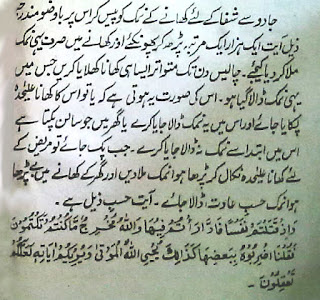 جادو سے شفا کے لئے کھانے کے نمک کو پیس کر اس پر باوضو مندرجہ
ذیل آیت ایک ہزار ایک مرتبہ پڑھ کر پھونکئے اور کھانے میں صرف یہی نمک
ملا کر دیا کیجئے۔ چالیس دن تک متواتر ایسا ہی کھانا کھلایا کریں جس میں
یہی نمک ڈالا گیا ہو۔ اس کی صورت یہ ہوتی ہے کہ یا تو اس کا کھانا علیحدہ
پکایا جائے اور اس میں یہ نمک ڈالا جایا کرے یا گھر میں جو سالن پکتا ہے
اس میں ابتدا سے نمک نہ ڈالا جایا کرے۔ جب پک جائے تو مریض کے
لئے کھانا علیحدہ نکال کر پڑھا ہوا نمک ملا دیں اور گھر کے کھانے میں بے پڑھا
ہوا نمک حسبِ عادت ڈالا جائے۔ آیت حسبِ ذیل ہے۔
وَاِذْ قَتَلْتُمْ نَفْسًا فَادّٰرَأْتُمْ فِيْهَا وَاللّٰهُ مُخْرِجٌ مَّا كُنْتُمْ تَكْتُمُوْنَ
فَقُلْنَا اضْرِبُوْهُ بِبَعْضِهَا كَذٰلِكَ يُحْيِ اللّٰهُ الْمَوْتٰى وَيُرِيْكُمْ اٰيَاتِهٖ لَعَلَّكُمْ
تَعْقِلُوْنَ۔